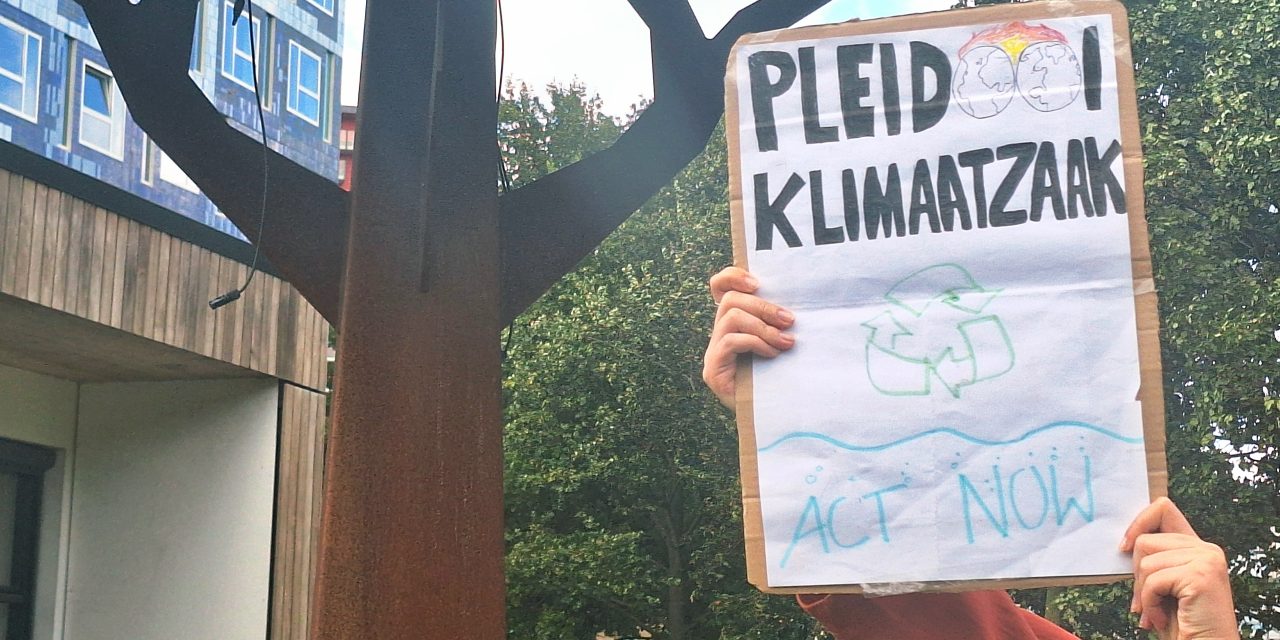 PLEIDOOI
KLIMAATZAAK
ACT NOW